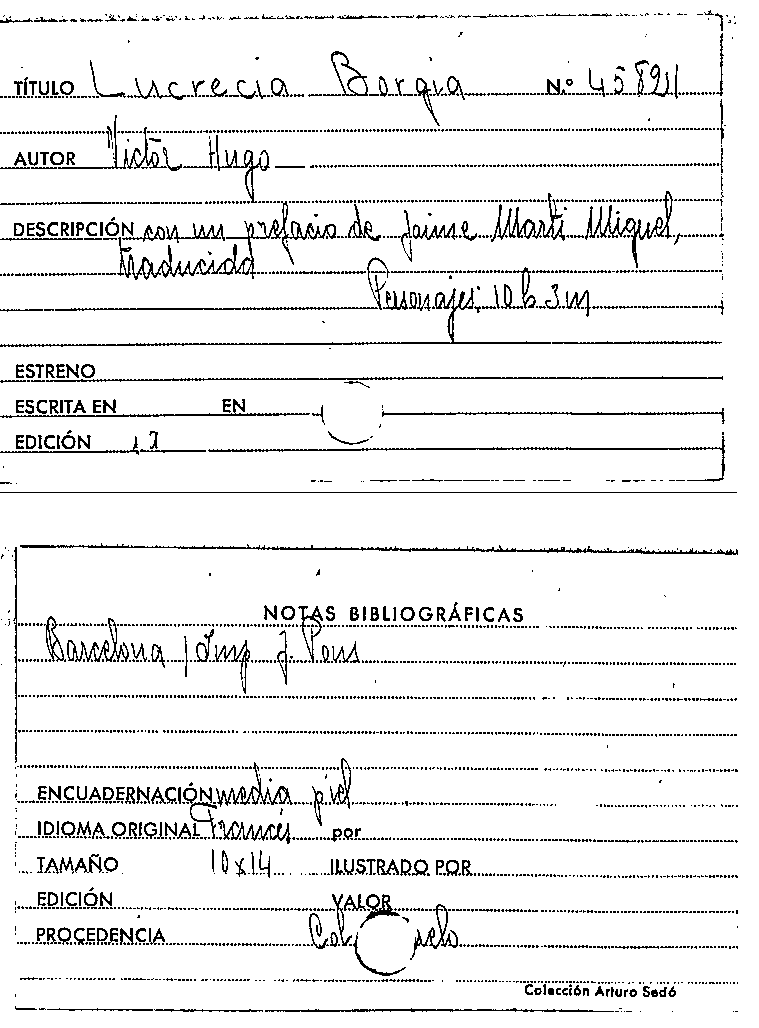 TÍTULO Lucrecia Borgia N.º
AUTOR Victor Hugo
DESCRIPCIÓN con un prefacio de Jaime Marti Miquel,
traducido
Personajes; 10 h 3 m
ESTRENO
ESCRITA EN EN
EDICIÓN
NOTAS BIBLIOGRÁFICAS
Barcelona / Imp J. Pons
ENCUADERNACIÓN media piel
IDIOMA ORIGINAL Francés por
TAMAÑO 10 x 14 ILUSTRADO POR
EDICIÓN VALOR
PROCEDENCIA
Colección Arturo Sedó